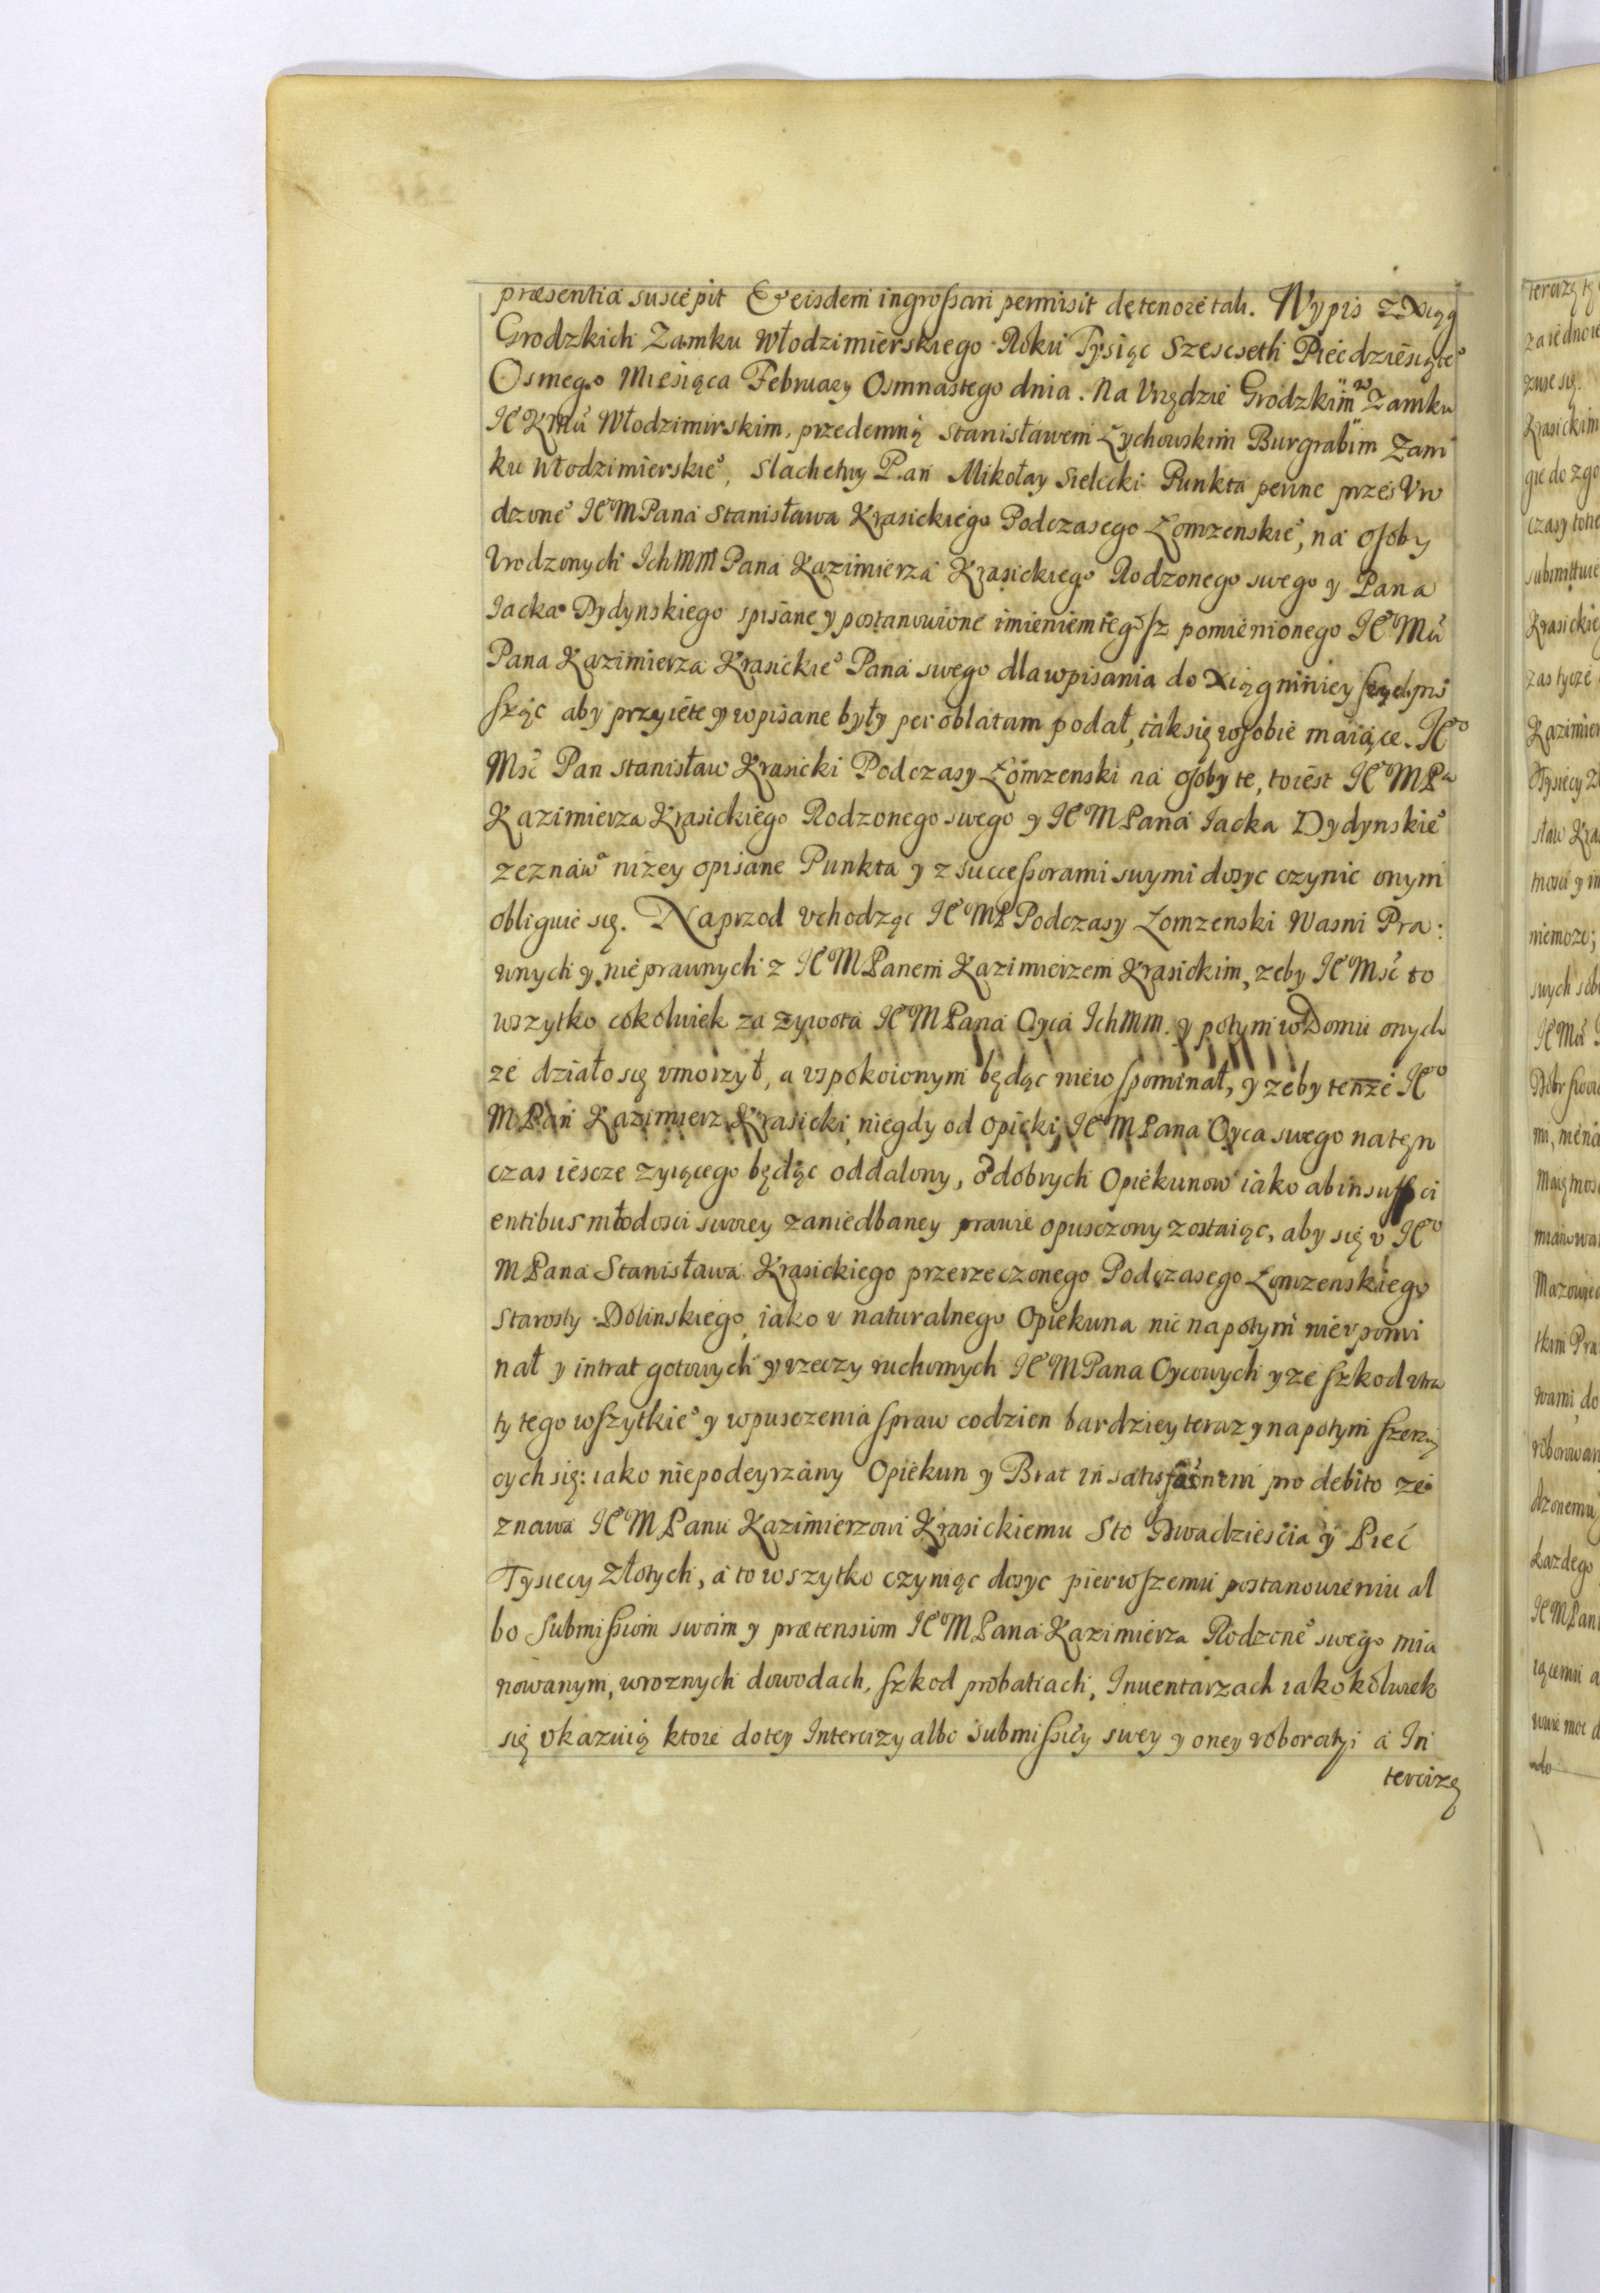 præsentia suscepit Et eisdem ingrossari permisit de tenore tali. Wypis z Xiąg
Grodzkich Zamku Włodzimierskiego Roku Tysiąc Szescseth Piecdziesiąte°
Osmego Miesiąca February Osmnastego dnia. Na Vrzędzie Grodzkim w Zamku
IE° KMci Włodzimirskim, przedemną Stanisławem Łychowskim Burgrabim Zam
ku Włodzimierskie°, Slachetny Pan Mikołay Sielecki Punkta pewne przes Vro
dzone° IE° M Pana Stanisława Krasickiego Podczasego Łomzenskie°, na osoby
Vrodzonych Ich mm Pana Kazimierza Krasickiego Rodzonego swego y Pana
Iacka Dydynskiego spisane y postanowione imieniem tegosz pomienionego IE° Mci
Pana Kazimierza Krasickie° Pana swego dla wpisania do Xiąg niniey szych pro
sząc aby przyiete y wpisane były per oblatam podał, tak się w sobie maiące. IE°
Msc Pan Stanisław Krasicki Podczasy Łomzenski na osoby te, to iest IE° M Pa
Kazimierza Krasickiego Rodzonego swego y IE° M Pana Iacka Dydynskie°
zeznaw nizey opisane Punkta y z successorami swymi dosyc czynic onym
obliguie się. Naprzod vchodząc IE° M P Podczasy Łomzenski Wasni Pra:
wnych y nie prawnych z IE° M Panem Kazimierzem Krasickim, zeby IE° Msc to
wszytko cokolwiek za zywota IE° M Pana Oyca Ich mm. y potym w Domu onych
ze działo się vmorzył, a vspokoionym będąc nie wspominał, y zeby tenze IE°
M Pan Kazimierz Krasicki, niegdy od opieki IE° M Pana Oyca swego na ten
czas iescze zyiącego będąc oddalony, od dobrych Opiekunow iako ab insuffici
entibus młodosci swoiey zaniedbaney prawie opusczony zostaiąc, aby się v IE°
M Pana Stanisława Krasickiego przerzeczonego Podczasego Łomzenskiego
Starosty Dolinskiego, iako v naturalnego Opiekuna nic napotym nie vpomi
nał y intrat gotowych y rzeczy ruchomych IE° M Pana Oycowych y ze szkod vtra
ty tego wszytkie° y wpusczenia spraw codzien bardziey teraz y napotym szerzą
cych się: iako niepodeyrzany Opiekun y Brat in satisfacnem pro debito ze
znawa IE° M Panu Kazimierzowi Krasickiemu Sto Dwadziescia y Piec
Tysiecy Złotych, a to wszytko czyniąc dosyc pierwszemu postanowieniu al
bo submissiom swoim y prætensiom IE° M Pana Kazimierza Rodzone° swego mia
nowanym, w roznych dowodach, szkod probatiach, Inuentarzach iakokolwiek
się vkazuią ktore do tey Intercizy albo submissiey swey y oney roboratyi a In
tercizę